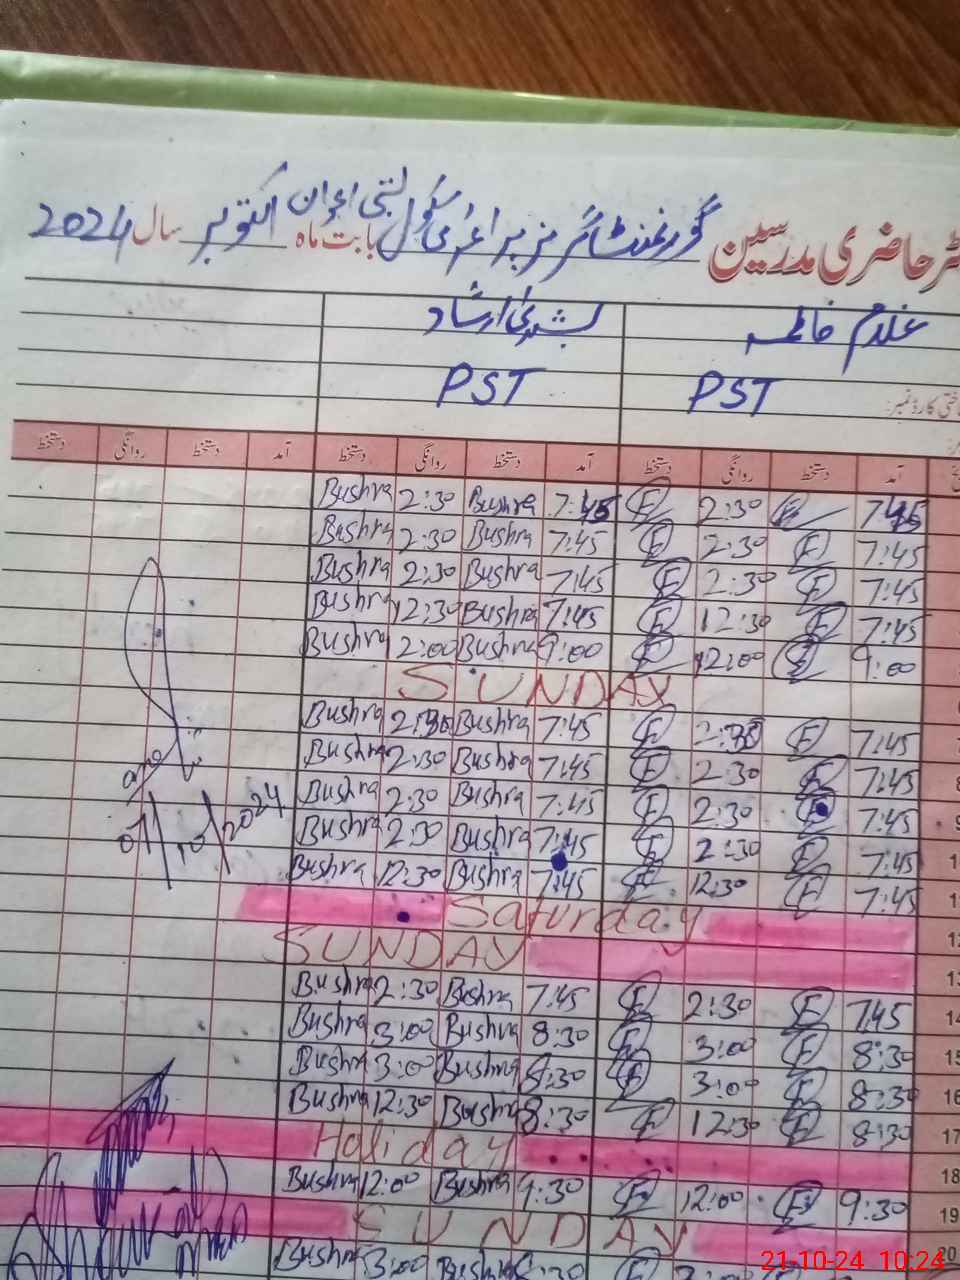 رجسٹر حاضری مدرسین گورنمنٹ گرلز پرائمری سکول بستی اعوان بابت ماہ اکتوبر سال 2024
غلام فاطمہ بشریٰ ارشاد
PST PST
آمد دستخط روانگی دستخط آمد دستخط روانگی دستخط آمد دستخط روانگی دستخط
Bushra 2:30 Bushra 7:45 F 2:30 F 7:45
Bushra 2:30 Bushra 7:45 F 2:30 F 7:45
Bushra 2:30 Bushra 7:45 F 2:30 F 7:45
Bushra 12:30 Bushra 7:45 F 12:30 F 7:45
Bushra 2:00 Bushra 9:00 F 12:00 F 9:00
SUNDAY
Bushra 2:30 Bushra 7:45 F 2:30 F 7:45
Bushra 2:30 Bushra 7:45 F 2:30 F 7:45 8
Bushra 2:30 Bushra 7:45 F 2:30 F 7:45 9
Bushra 2:30 Bushra 7:45 F 2:30 F 7:45
Bushra 12:30 Bushra 7:45 F 12:30 F 7:45
07/10/2024
Saturday 12
SUNDAY 13
Bushra 2:30 Bushra 7:45 F 2:30 F 7:45 14
Bushra 3:00 Bushra 8:30 F 3:00 F 8:30 15
Bushra 3:00 Bushra 8:30 F 3:00 F 8:30 16
Bushra 12:30 Bushra 8:30 F 12:30 F 8:30 17
Holiday 18
Bushra 12:00 Bushra 9:30 F 12:00 F 9:30 19
SUNDAY 20
Bushra 3:00 Bushra 8:30
21-10-24 10:24